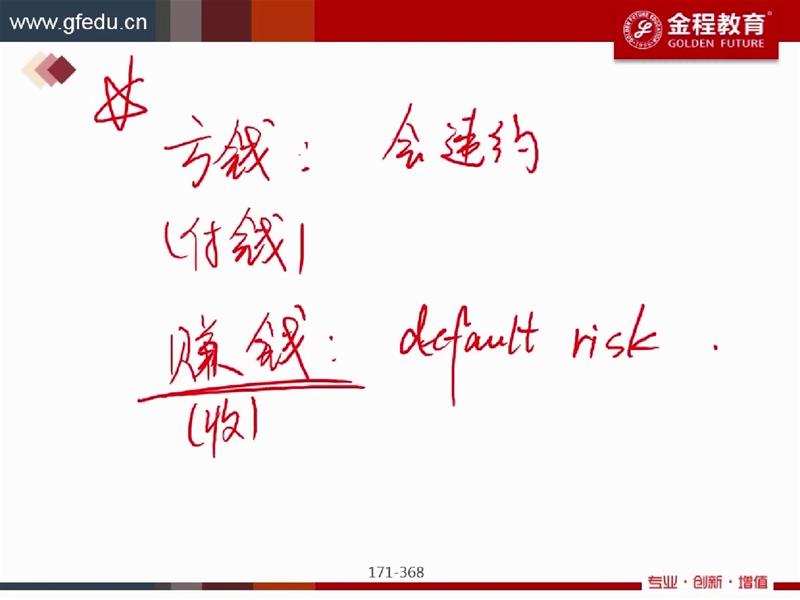 www.gfedu.cn
金程教育®
GOLDEN FUTURE
亏钱： 会违约
(付钱)
赚钱： default risk .
(收)
171-368
专业·创新·增值